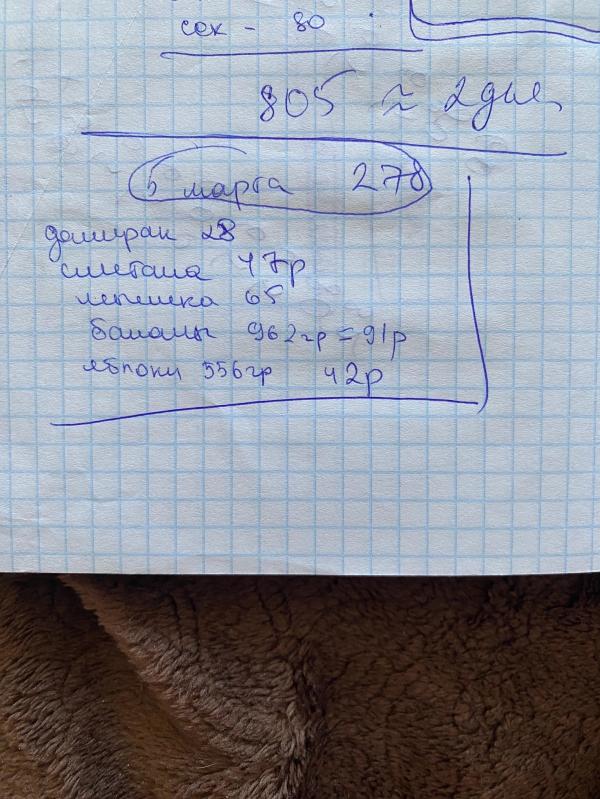 сок - 80
805 ≈ 2 дня
5 марта 278
доширак 28
сметана 47р
лепешка 65
бананы 962гр = 91р
яблоки 556гр 42р